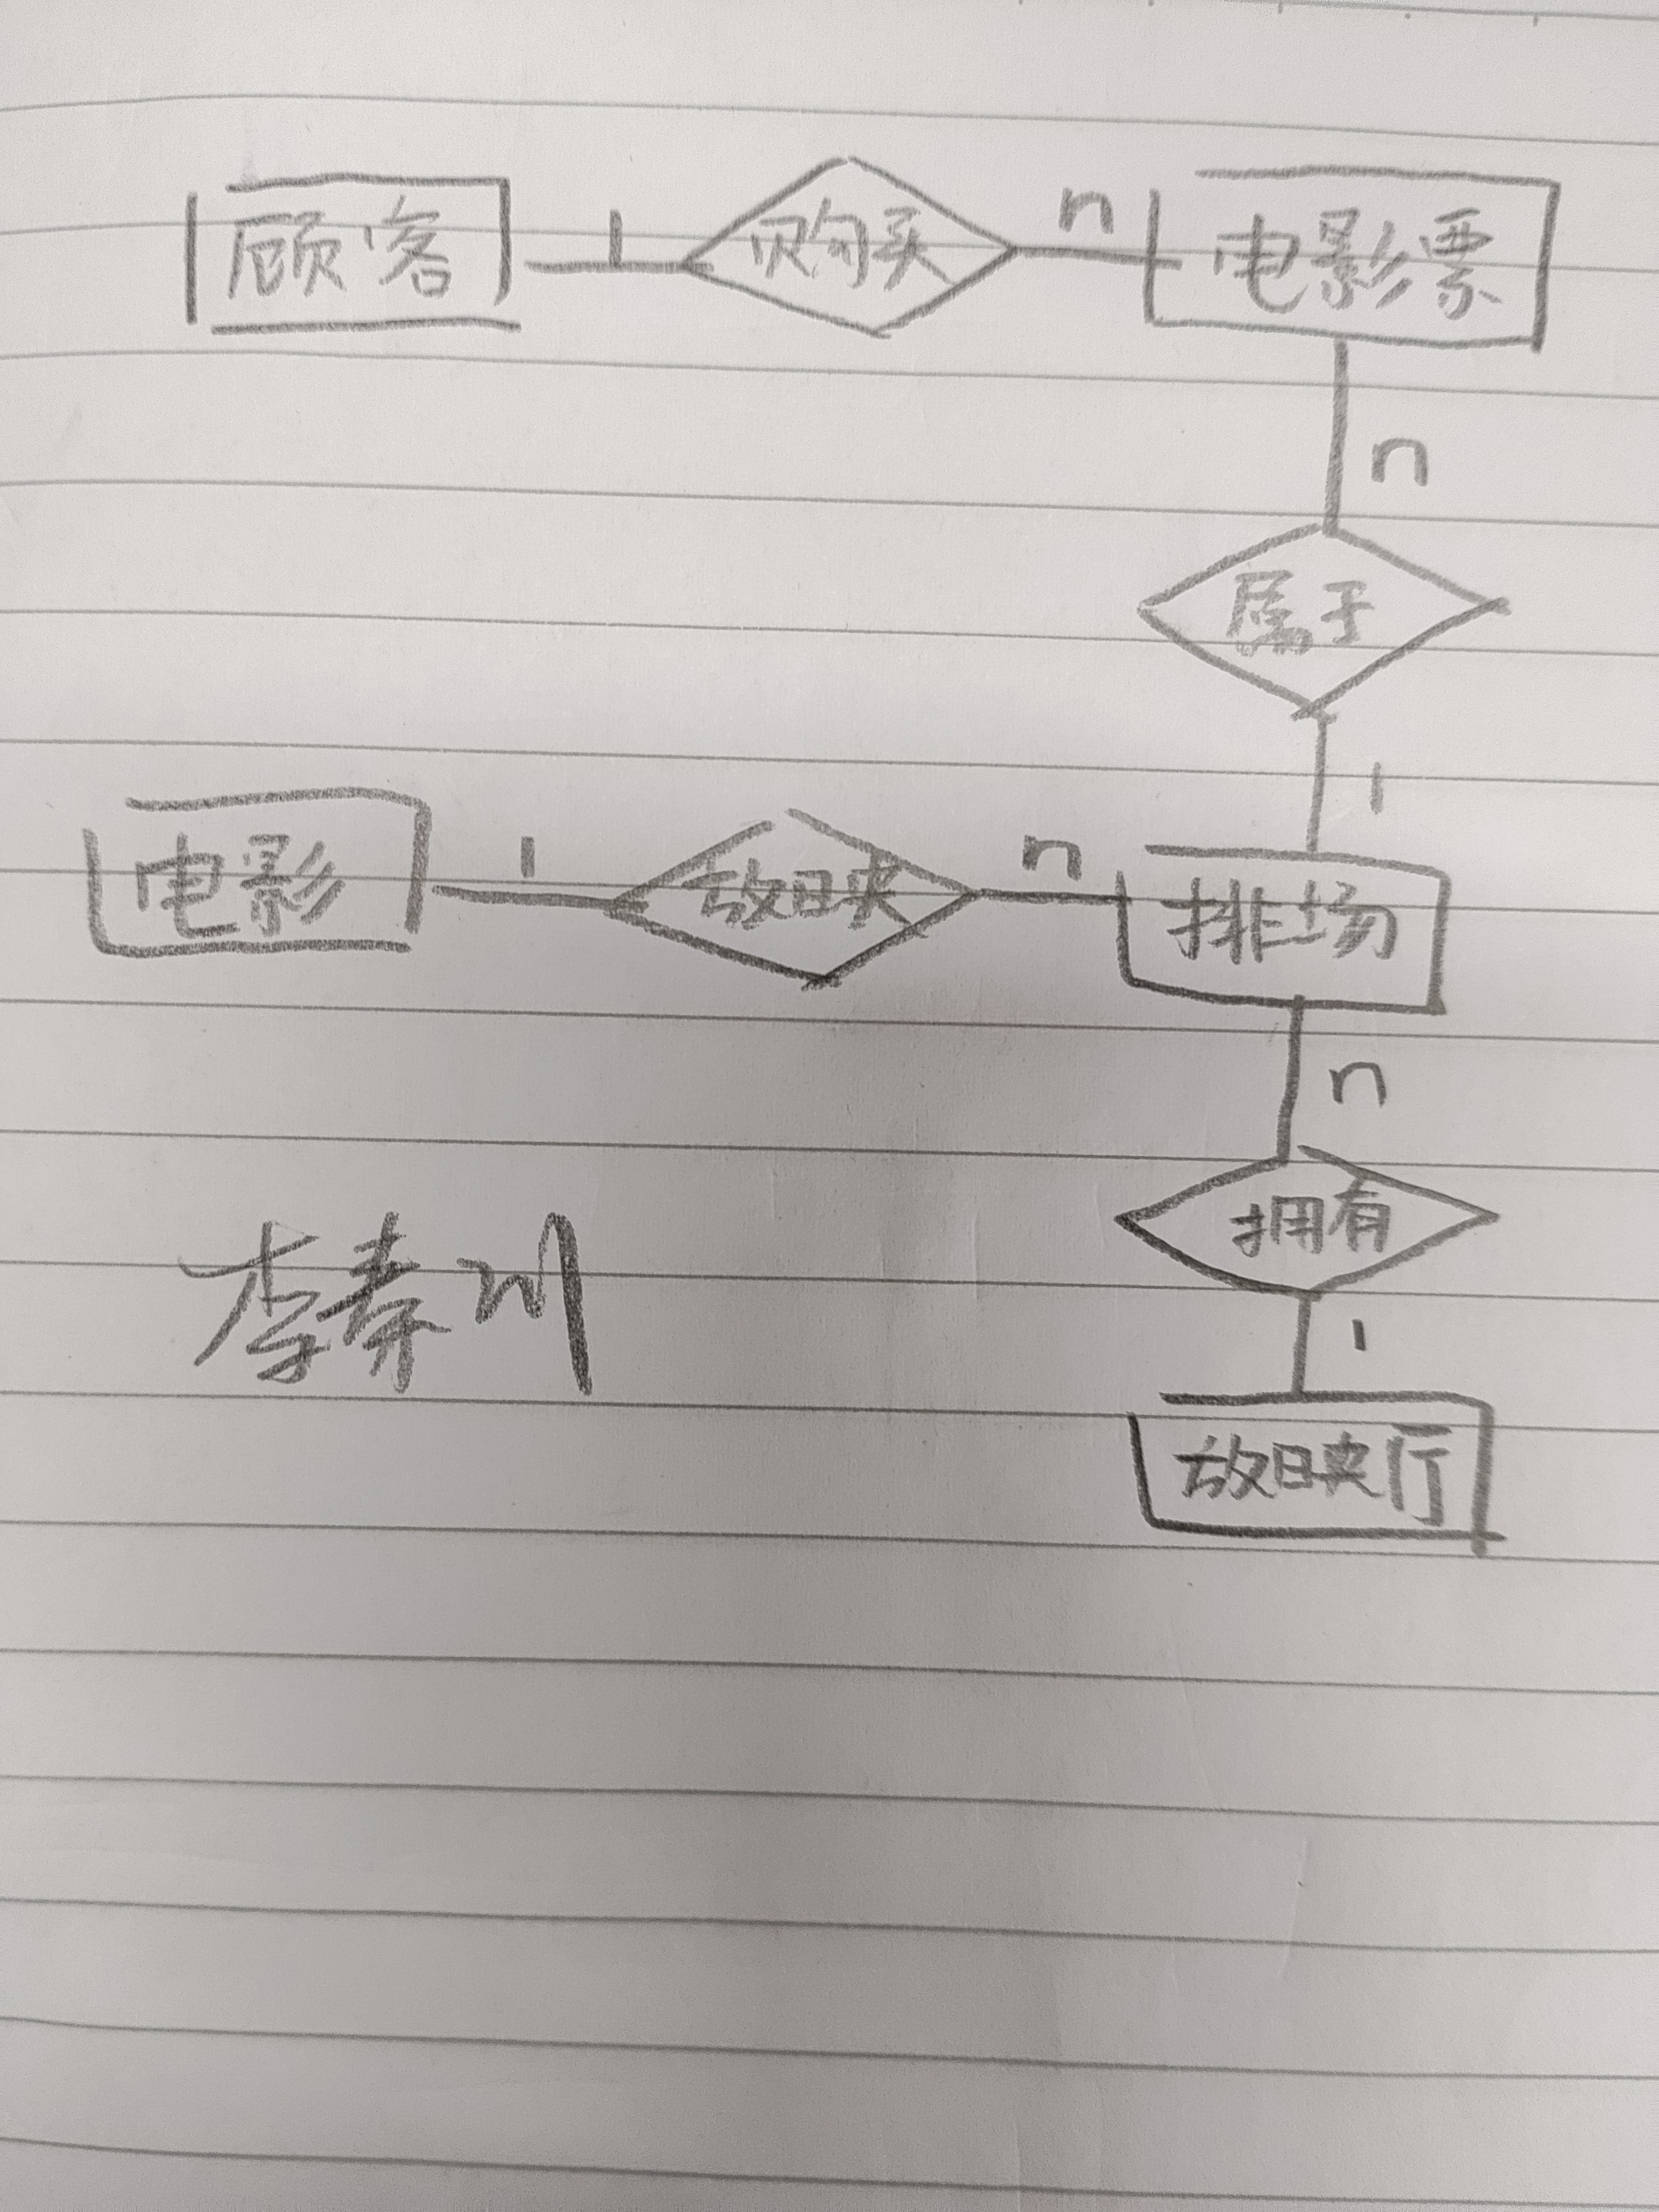 顾客 1 购买 n 电影票
n
属于
1
电影 1 放映 n 排场
n
拥有
李秦川
1
放映厅